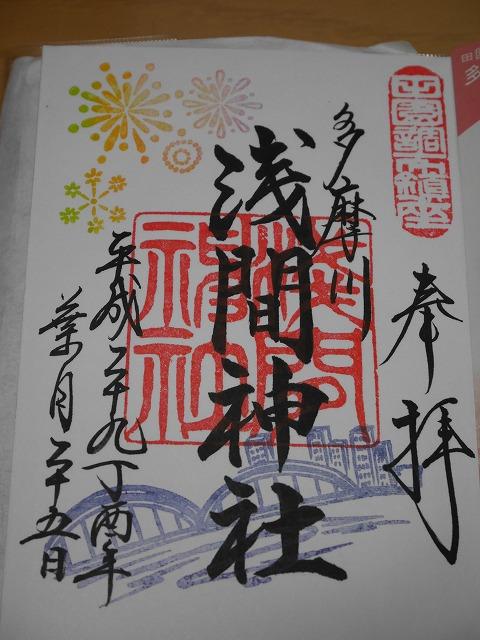 田園調布鎮座
奉拝
多摩川
浅間神社
浅間神社
平成二十九丁酉年
葉月二十五日
田
多